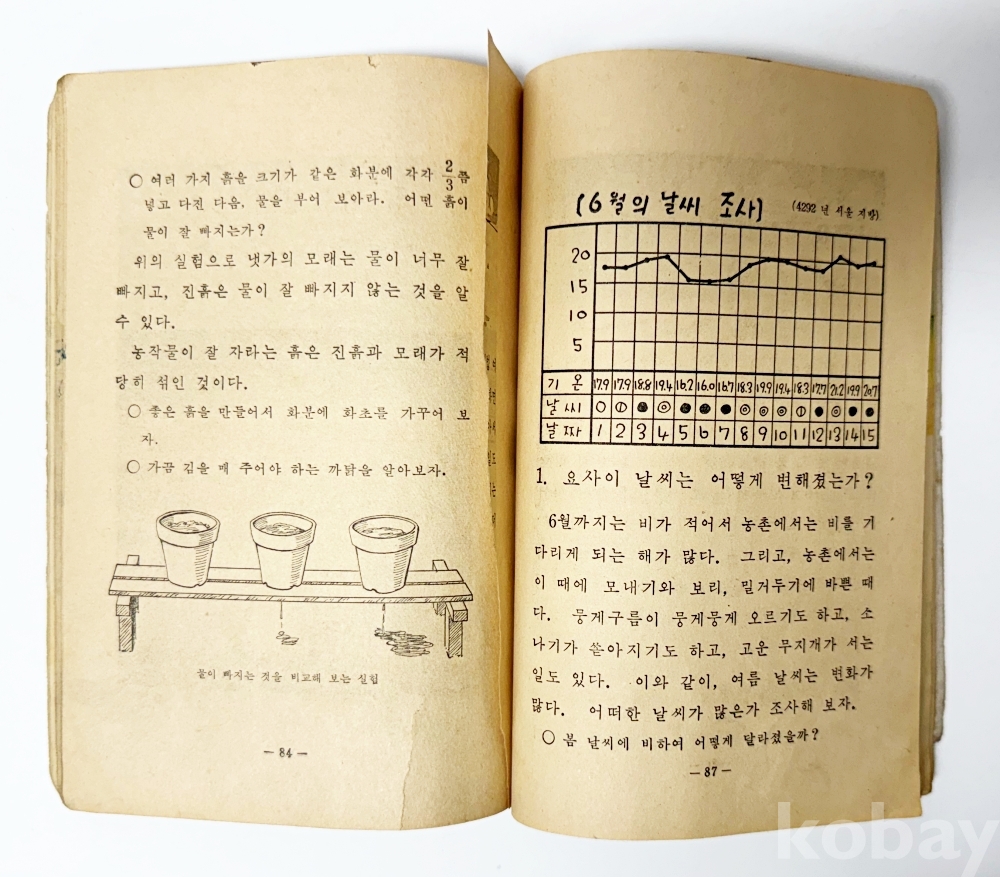 ○ 여러 가지 흙을 크기가 같은 화분에 각각 2/3쯤
넣고 다진 다음, 물을 부어 보아라. 어떤 흙이
물이 잘 빠지는가?
위의 실험으로 냇가의 모래는 물이 너무 잘
빠지고, 진흙은 물이 잘 빠지지 않는 것을 알
수 있다.
농작물이 잘 자라는 흙은 진흙과 모래가 적
당히 섞인 것이다.
○ 좋은 흙을 만들어서 화분에 화초를 가꾸어 보
자.
○ 가끔 김을 매 주어야 하는 까닭을 알아보자.
물이 빠지는 것을 비교해 보는 실험
— 84 —
[6월의 날씨 조사]
(4292 년 서울 지방)
20
15
10
5
기 온 17.9 17.9 18.8 19.4 16.2 16.0 16.7 18.3 19.9 19.4 18.3 17.7 21.2 19.9 20.7
날 씨
날 짜 1 2 3 4 5 6 7 8 9 10 11 12 13 14 15
1. 요사이 날씨는 어떻게 변해졌는가?
6월까지는 비가 적어서 농촌에서는 비를 기
다리게 되는 해가 많다. 그리고, 농촌에서는
이 때에 모내기와 보리, 밀거두기에 바쁜 때
다. 뭉게구름이 뭉게뭉게 오르기도 하고, 소
나기가 쏟아지기도 하고, 고운 무지개가 서는
일도 있다. 이와 같이, 여름 날씨는 변화가
많다. 어떠한 날씨가 많은가 조사해 보자.
○ 봄 날씨에 비하여 어떻게 달라졌을까?
— 87 —
kobay